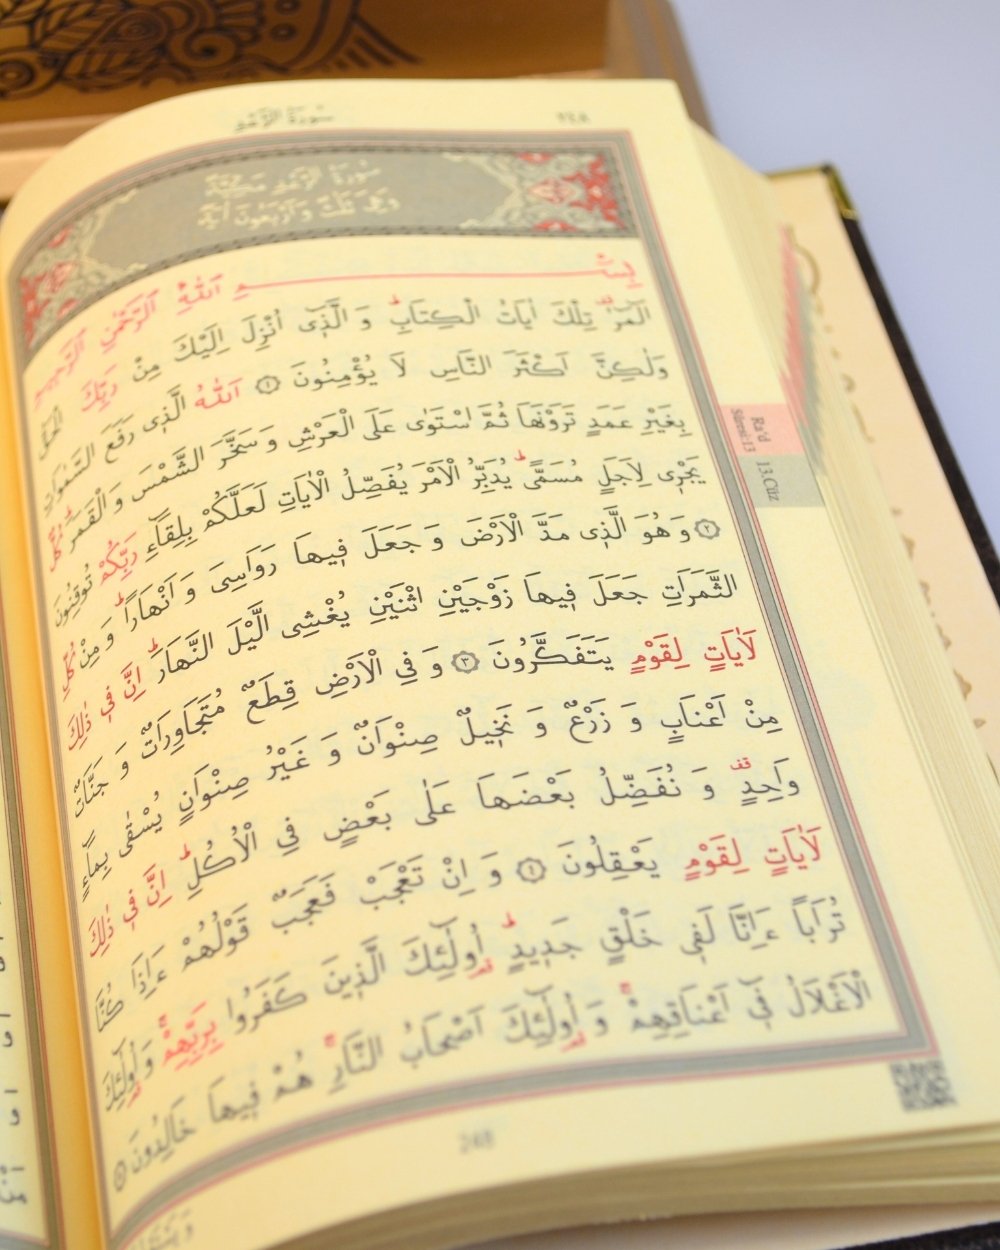 سورة الرعد
٢٤٨
سورة الرعد مكية
وهي ثلث واربعون اية
بِسْمِ اللّٰهِ الرَّحْمٰنِ الرَّحِيمِ
الٓمٓرٰ تِلْكَ اٰيَاتُ الْكِتَابِۜ وَ الَّذٖٓى اُنْزِلَ اِلَيْكَ مِنْ رَبِّكَ الْحَقُّ
وَلٰكِنَّ اَكْثَرَ النَّاسِ لَا يُؤْمِنُونَ ١ اَللّٰهُ الَّذٖى رَفَعَ السَّمٰوَاتِ
بِغَيْرِ عَمَدٍ تَرَوْنَهَا ثُمَّ اسْتَوٰى عَلَى الْعَرْشِ وَ سَخَّرَ الشَّمْسَ وَ الْقَمَرَۜ كُلٌّ
يَجْرٖى لِاَجَلٍ مُسَمًّىۜ يُدَبِّرُ الْاَمْرَ يُفَصِّلُ الْاٰيَاتِ لَعَلَّكُمْ بِلِقَٓاءِ رَبِّكُمْ تُوقِنُونَ
٢ وَ هُوَ الَّذٖى مَدَّ الْاَرْضَ وَ جَعَلَ فٖيهَا رَوَاسِىَ وَ اَنْهَاراًۜ وَ مِنْ كُلِّ
الثَّمَرَاتِ جَعَلَ فٖيهَا زَوْجَيْنِ اثْنَيْنِ يُغْشِى الَّيْلَ النَّهَارَۜ اِنَّ فٖى ذٰلِكَ
لَاٰيَاتٍ لِقَوْمٍ يَتَفَكَّرُونَ ٣ وَ فِى الْاَرْضِ قِطَعٌ مُتَجَاوِرَاتٌ وَ جَنَّاتٌ
مِنْ اَعْنَابٍ وَ زَرْعٌ وَ نَخٖيلٌ صِنْوَانٌ وَ غَيْرُ صِنْوَانٍ يُسْقٰى بِمَٓاءٍ
وَاحِدٍ وَ نُفَضِّلُ بَعْضَهَا عَلٰى بَعْضٍ فِى الْاُكُلِۜ اِنَّ فٖى ذٰلِكَ
لَاٰيَاتٍ لِقَوْمٍ يَعْقِلُونَ ٤ وَ اِنْ تَعْجَبْ فَعَجَبٌ قَوْلُهُمْ ءَاِذَا كُنَّا
تُرَاباً ءَاِنَّا لَفٖى خَلْقٍ جَدٖيدٍۜ اُولٰٓئِكَ الَّذٖينَ كَفَرُوا بِرَبِّهِمْۚ وَ اُولٰٓئِكَ
الْاَغْلَالُ فٖٓى اَعْنَاقِهِمْۚ وَ اُولٰٓئِكَ اَصْحَابُ النَّارِۚ هُمْ فٖيهَا خَالِدُونَ ٥
248
Ra'd
Sûresi:13
13.Cüz